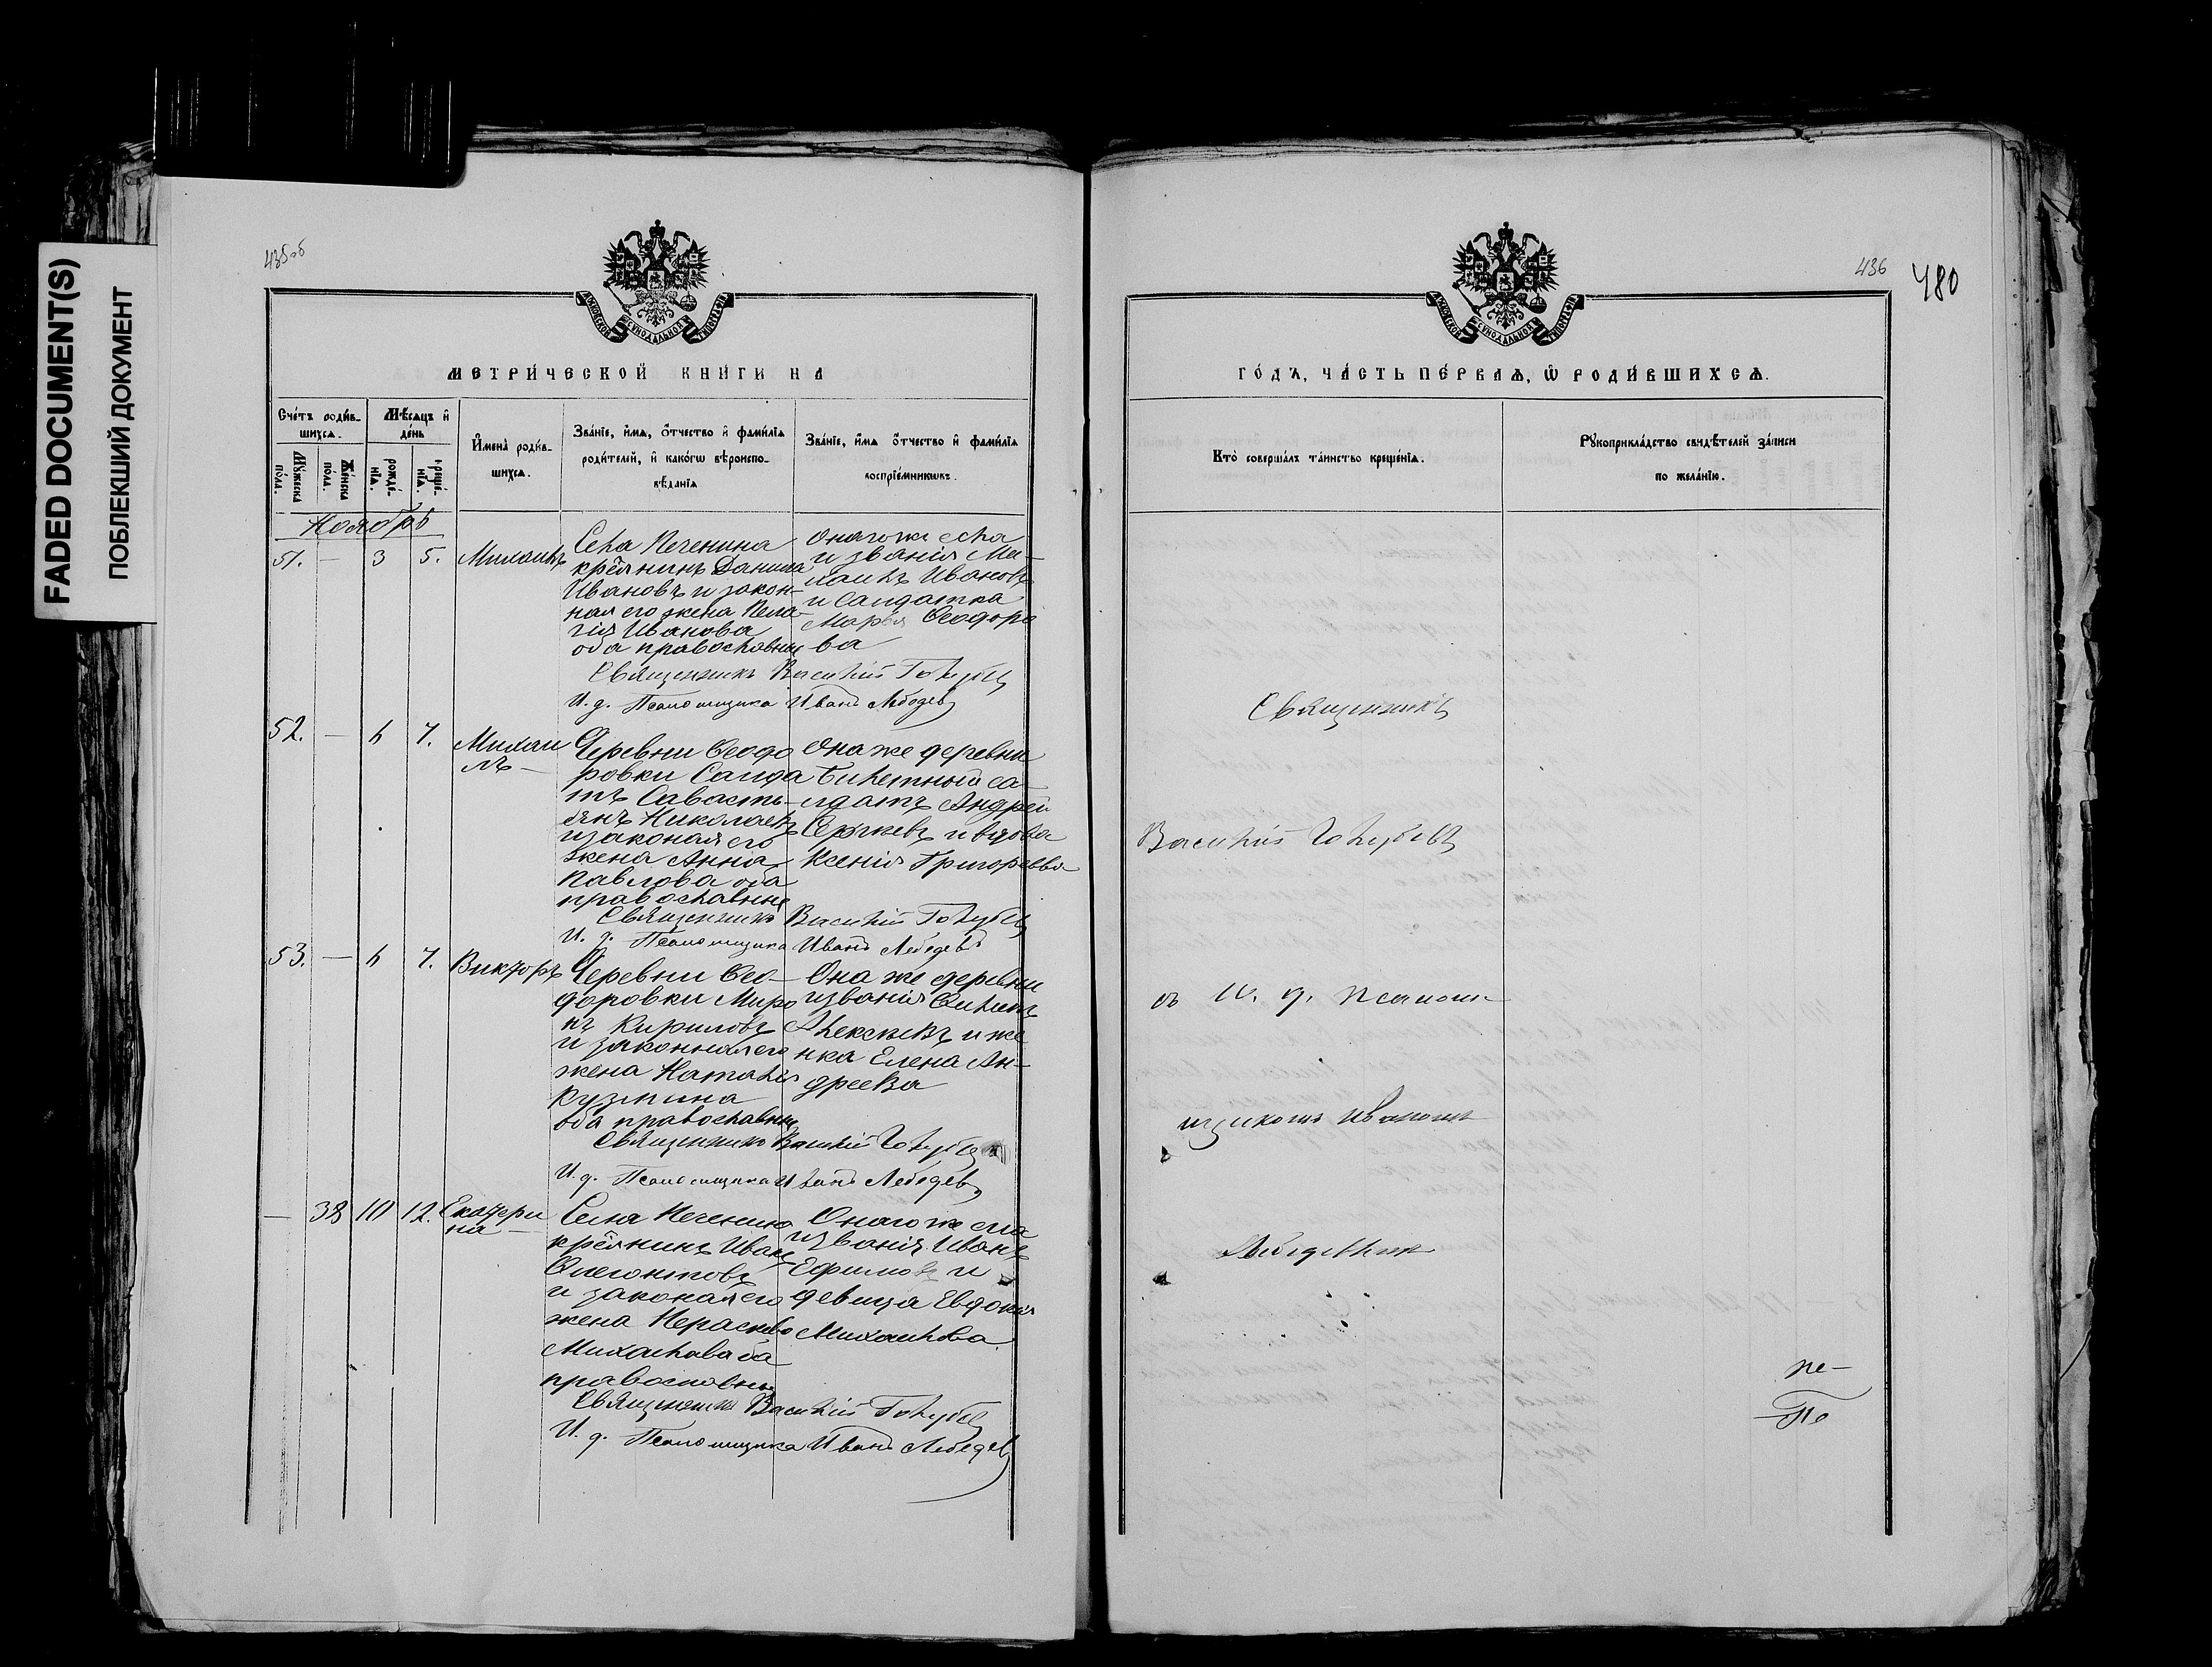 FADED DOCUMENT(S)
ПОБЛЕКШИЙ ДОКУМЕНТ
435об
МОСКОВСКОЙ СѴНОДАЛЬНОЙ ТИПОГРАФІИ
МЕТРИ́ЧЕСКОЙ КНИ́ГИ НА
Сче́тъ роди́в-
шихсѧ.
Мꙋ́жеска
по́ла.
Же́нска
по́ла.
Мѣ́сѧцъ и҆
де́нь
рожде́-
нїѧ.
креще́-
нїѧ.
И҆мена̀ роди́в-
шихсѧ.
Зва́нїе, и҆́мѧ, ѻ҆́тчество и҆ фами́лїѧ
роди́телей, и҆ како́гѡ вѣроиспо-
вѣ́данїѧ
Зва́нїе, и҆́мѧ ѻ҆́тчество и҆ фами́лїѧ
воспрїе́мникѡвъ.
Ноябрь
51. — 3 5. Михаилъ
Села Печенина
крестьянинъ Данила
Ивановъ и закон-
ная его жена Пела-
гія Иванова
оба православные
Онагоже села
и званія Ми-
хаилъ Ивановъ
и Салдатка
Марья Феодоро
ва
Священникъ Василій Голубевъ
И. д. Псаломщика Иванъ Лебедевъ
52. — 6 7. Михаи
лъ —
Деревни Феодо
ровки Салда
тъ Савасть-
янъ Николаевъ
и законая его
жена Анна
Павлова оба
православные
Она же деревни
Билетный са-
лдатъ Андрей
Сергѣевъ и вдова
Ксенія Григорьева
Священникъ Василій Голубевъ
И. д. Псаломщика Иванъ Лебедевъ
53. — 6 7. Викторъ
Деревни Фео-
доровки Миро
нъ Кириловъ
и законная его
жена Наталія
Кузмина
оба православные
Она же деревни
и званія Филипъ
Алексѣевъ и же
нка Елена Ан-
дреева
Священникъ Василій Голубевъ
И. д. Псаломщика Иванъ Лебедевъ
— 38 10 12. Екатери
на —
Села Печенино
крестьянинъ Иванъ
и законая его
жена Параскева
Михаилова оба
православные
Онаго же села
и званія Иванъ
Ефимовъ и
девица Евдокія
Михаилова
Священникъ Василій Голубевъ
И. д. Псаломщика Иванъ Лебедевъ
436
480
МОСКОВСКОЙ СѴНОДАЛЬНОЙ ТИПОГРАФІИ
ГО́ДЪ, ЧА́СТЬ ПЕ́РВАѦ, Ѽ РОДИ́ВШИХСѦ.
Кто̀ соверша́лъ та́инство креще́нїѧ.
Рꙋкоприкла́дство свидѣ́телей за́писи
по жела́нїю.
Священникъ
Василій Голубевъ
съ И. д. псалом-
щикомъ Иваномъ
Лебедевымъ